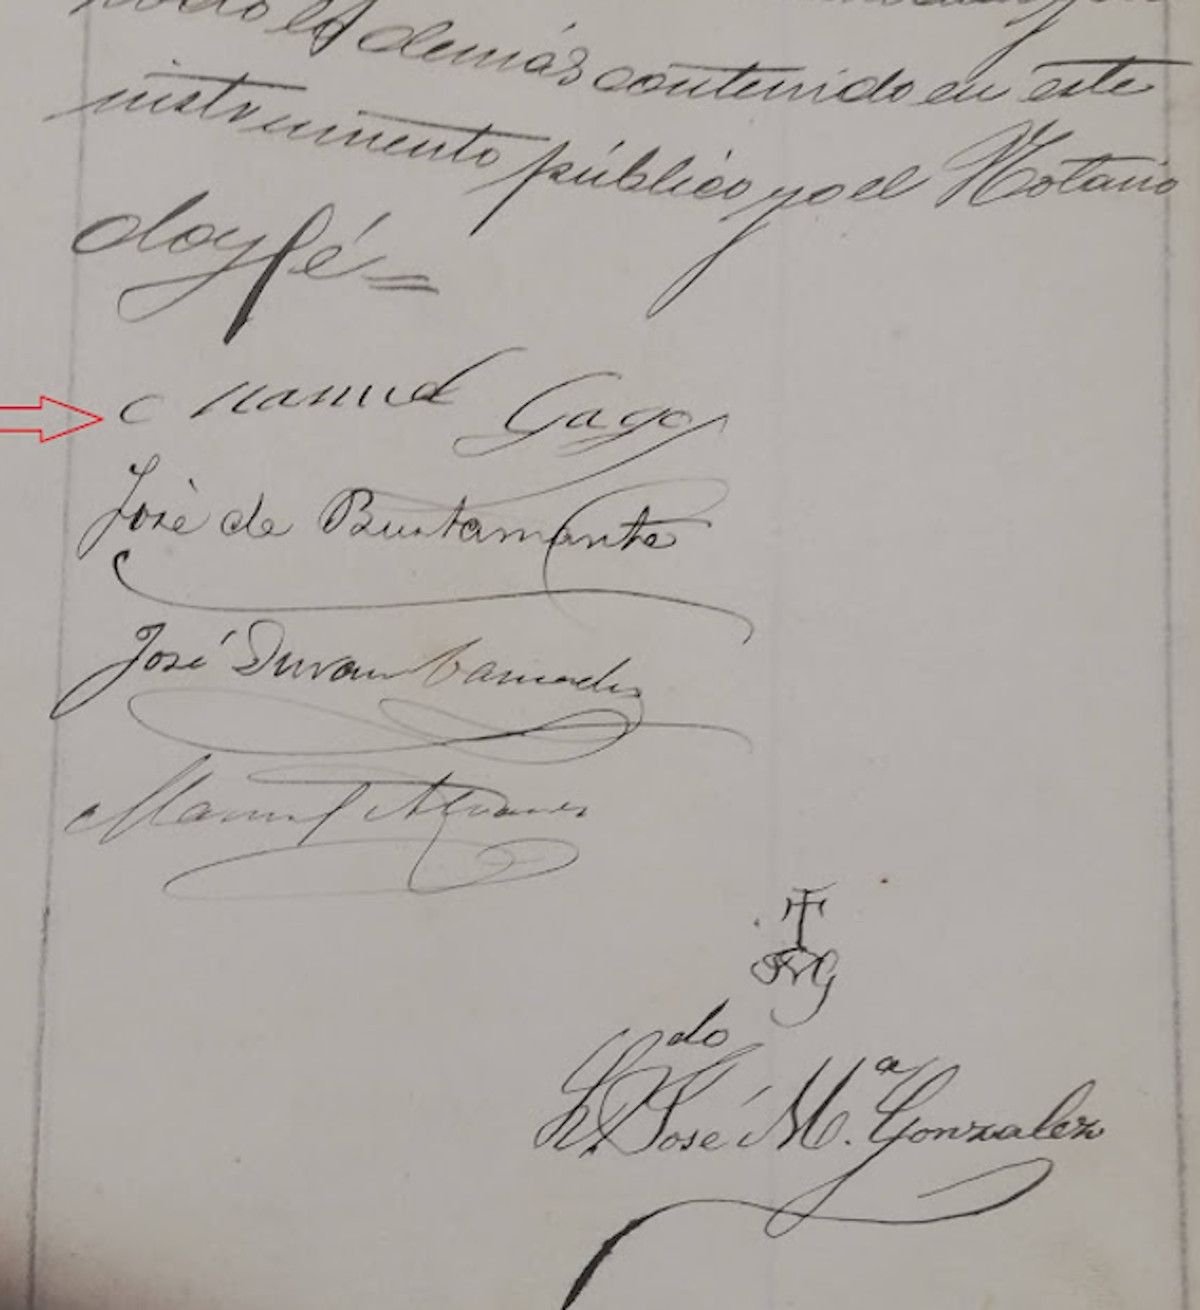 todo lo demás contenido en este
instrumento público yo el Notario
doy fé =
Manuel Gago
José de Bustamante
José Duran
Manuel Alvarez
L.do José M.a Gonzalez